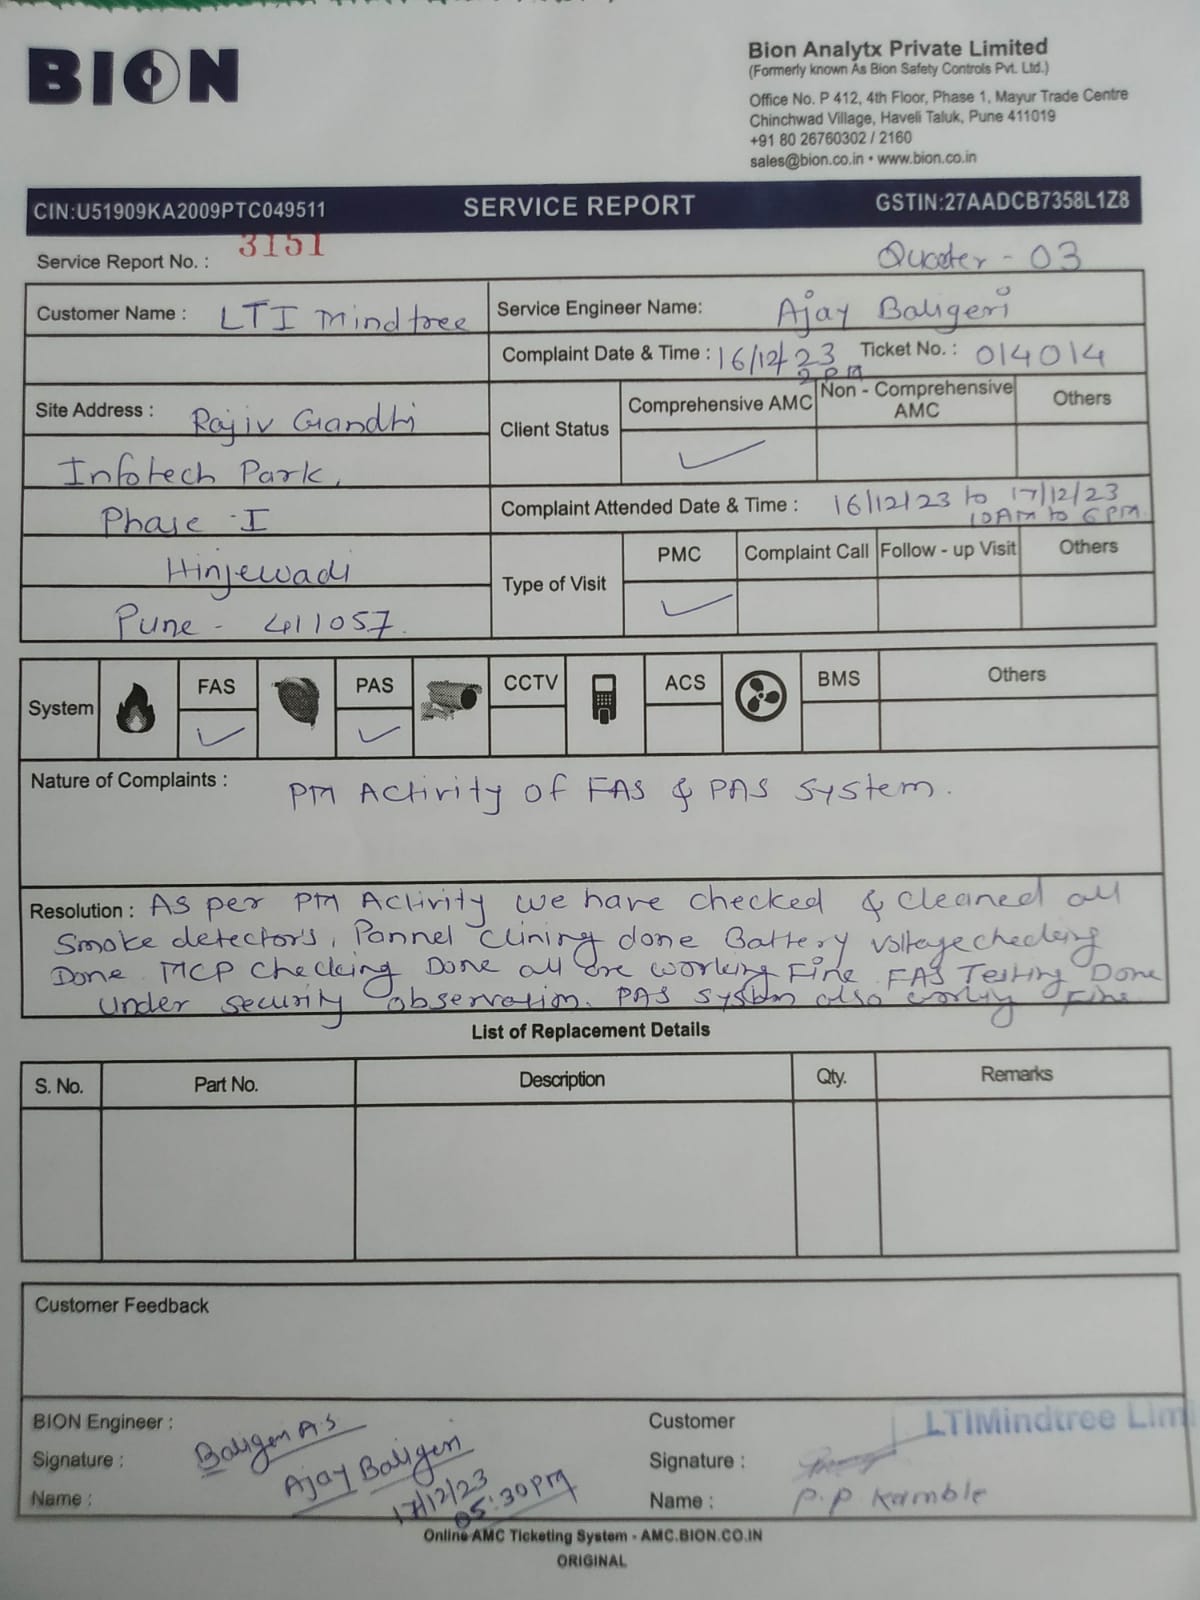 BION
Bion Analytx Private Limited
(Formerly known As Bion Safety Controls Pvt. Ltd.)
Office No. P 412, 4th Floor, Phase 1, Mayur Trade Centre
Chinchwad Village, Haveli Taluk, Pune 411019
+91 80 26760302 / 2160
sales@bion.co.in • www.bion.co.in
CIN:U51909KA2009PTC049511 SERVICE REPORT GSTIN:27AADCB7358L1Z8
Service Report No. : 3151 Quater - 03
Customer Name : LTI mindtree
Service Engineer Name: Ajay Baligeri
Complaint Date & Time : 16/12/23 2 PM Ticket No. : 014014
Site Address : Rajiv Gandhi
Infotech Park,
Phase -I
Hinjewadi
Pune - 411057.
Client Status Comprehensive AMC Non - Comprehensive AMC Others
✓
Complaint Attended Date & Time : 16/12/23 to 17/12/23
10AM to 6PM.
Type of Visit PMC Complaint Call Follow - up Visit Others
✓
System FAS PAS CCTV ACS BMS Others
✓ ✓
Nature of Complaints : PM Activity of FAS & PAS System.
Resolution : As per PM Activity we have checked & cleaned all
Smoke detectors, Pannel clining done Battery voltage checking
Done. MCP checking Done all are working Fine FAS Testing Done
under security observation. PAS system also working Fine
List of Replacement Details
S. No. Part No. Description Qty. Remarks
Customer Feedback
BION Engineer :
Signature : Baligeri A.S
Name : Ajay Baligeri
17/12/23
05:30PM
Customer LTIMindtree Lim
Signature :
Name : P.P Kamble
Online AMC Ticketing System - AMC.BION.CO.IN
ORIGINAL